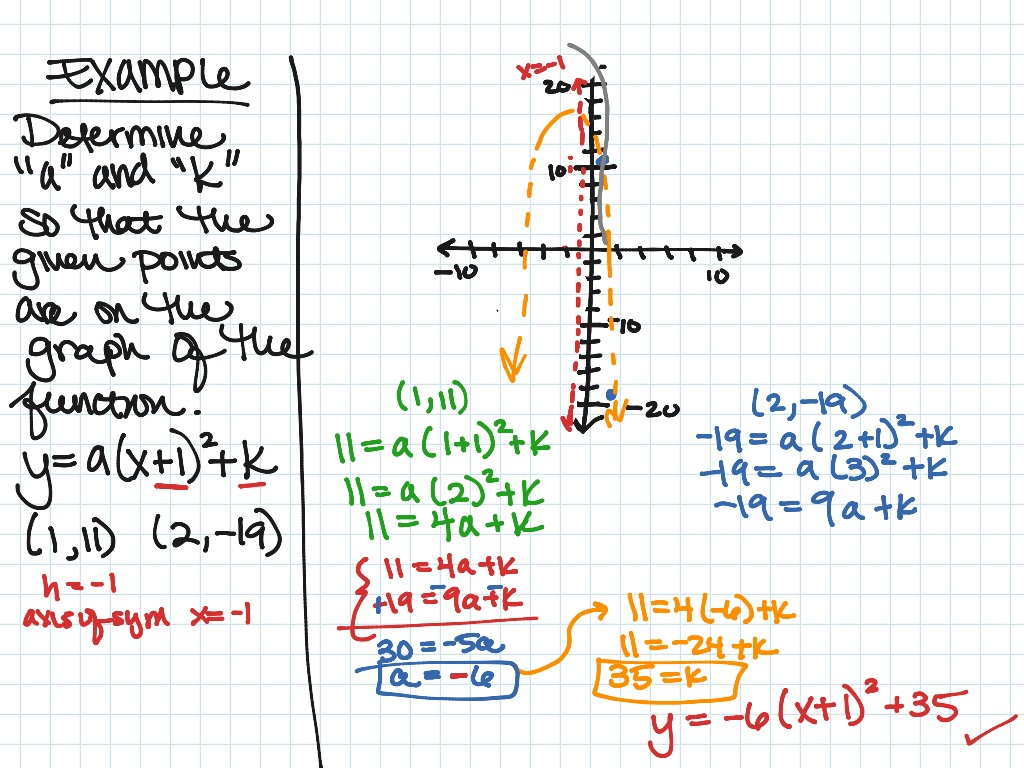 Example
Determine
"a" and "k"
so that the
given points
are on the
graph of the
function.
y = a(x+1)² + k
(1,11) (2,-19)
h = -1
axis of sym x = -1
x = -1
20
10
-10
10
-10
-20
(1,11)
11 = a(1+1)² + k
11 = a(2)² + k
11 = 4a + k
11 = 4a + k
+19 = 9a + k
30 = -5a
a = -6
(2,-19)
-19 = a(2+1)² + k
-19 = a(3)² + k
-19 = 9a + k
11 = 4(-6) + k
11 = -24 + k
35 = k
y = -6(x+1)² + 35